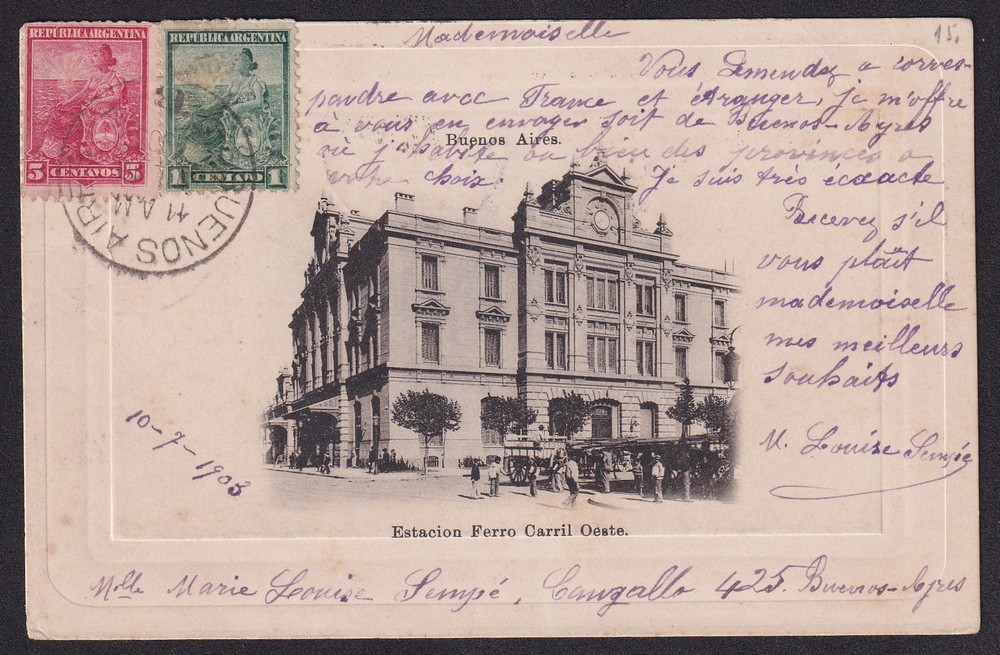 REPUBLICA ARGENTINA
5 CENTAVOS 5
REPUBLICA ARGENTINA
1 CENTAVO 1
BUENOS AIRES
11 A.M
15.
Mademoiselle
Vous demendez a corres-
pondre avec France et étranger, je m'offre
à vous en envoyer soit de Buenos-Ayres
Buenos Aires.
où j'habite ou bien des provinces a
votre choix. Je suis très exacte
Recevez s'il
vous plaît
mademoiselle
mes meilleurs
souhaits
M. Louise Sempé
10-7-1903
Estacion Ferro Carril Oeste.
Melle Marie Louise Sempé, Cangallo 425. Buenos-Ayres